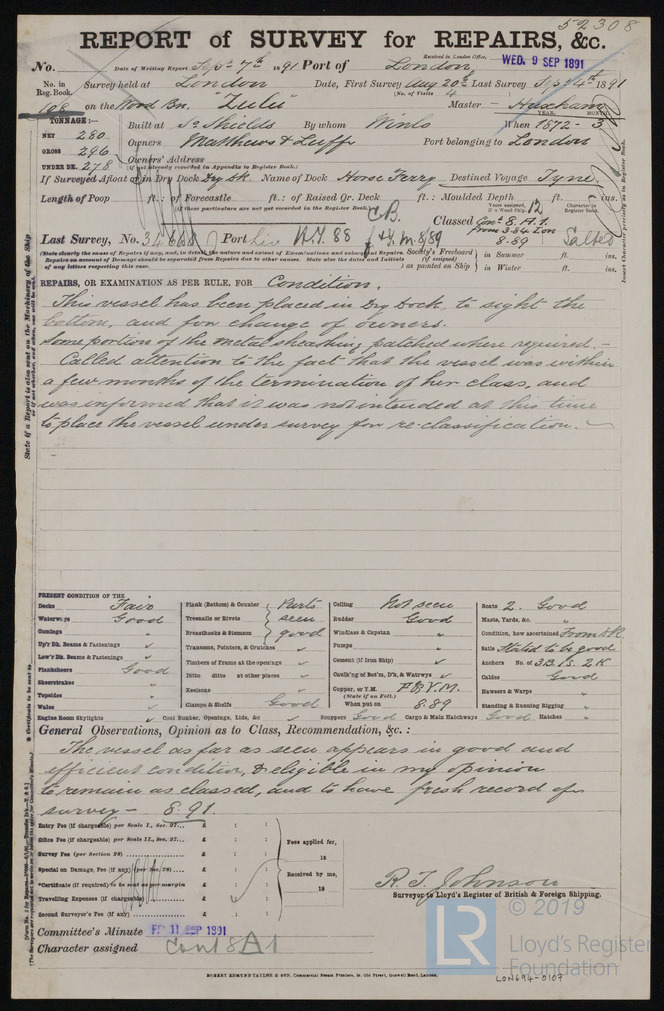 52308
REPORT of SURVEY for REPAIRS, &c.
Received in London Office, WED. 9 SEP 1891
No. Date of Writing Report Sept 7th 1891 Port of London
No. in Reg. Book. Survey held at London Date, First Survey Aug 20th Last Survey Sept 4th 1891
(No. of Visits 4)
108 on the Wood Bn. "Lulu" Master Huxham
TONNAGE:— YEAR. MONTH.
NET 280 Built at So Shields By whom Winlo When 1872 - 3
GROSS 296 Owners Matthews & Luff Port belonging to London
UNDER DK. 278 Owners' Address
(if not already recorded in Appendix to Register Book.)
If Surveyed Afloat or in Dry Dock Dry Dk Name of Dock Horse Ferry Destined Voyage Tyne
Length of Poop ft.: of Forecastle ft.: of Raised Qr. Deck ft.: Moulded Depth ft. ins.
(If these particulars are not yet recorded in the Register Book.)
Years assigned, if a Wood Ship. 12 Character in Register Book.
C.B. Classed Cont. 8. A.1.
8.89 Salted
Last Survey, No. Port Liv N.Y. 88 8/89
(State clearly the cause of Repairs if any, and, in detail, the nature and extent of Examinations and subsequent Repairs.
Repairs on account of Damage should be separated from Repairs due to other causes. State also the dates and Initials
of any letters respecting this case.
Society's Freeboard (if assigned) as painted on Ship in Summer ft. ins.
in Winter ft. ins.
REPAIRS, OR EXAMINATION AS PER RULE, FOR Condition.
This vessel has been placed in Dry Dock, to sight the
bottom, and for change of owners.
Some portion of the metal sheathing patched where required.—
Called attention to the fact that the vessel was within
a few months of the termination of her class, and
was informed that it was not intended at this time
to place the vessel under survey for re-classification.
PRESENT CONDITION OF THE
Decks Fair
Waterways Good
Comings "
Up'r Dk. Beams & Fastenings "
Low'r Dk. Beams & Fastenings
Planksheers Good
Sheerstrakes "
Topsides "
Wales "
Engine Room Skylights
Plank (Bottom) & Counter
Treenails or Rivets
Breasthooks & Stemson
Parts seen good
Transoms, Pointers, & Crutches
Timbers of Frame at the openings
Ditto ditto at other places
Keelsons
Clamps & Shelfs Good
Coal Bunker, Openings, Lids, &c
Ceiling Not seen
Rudder Good
Windlass & Capstan "
Pumps "
Cement (if Iron Ship)
Caulk'ng of Bot'm, D'k, & Waterw'ys
Copper, or Y.M. (State if on Felt.) F & Y.M.
When put on 8.89
Scuppers Good Cargo & Main Hatchways Good Hatches "
Boats 2. Good
Masts, Yards, &c. "
Condition, how ascertained From Dk
Sails Stated to be good
Anchors No. of 3B. 1S. 2K
Cables Good
Hawsers & Warps "
Standing & Running Rigging "
General Observations, Opinion as to Class, Recommendation, &c.:
The vessel as far as seen appears in good and
efficient condition, & eligible in my opinion
to remain as classed, and to have fresh record of
survey — 8.91.
Entry Fee (if chargeable) per Scale I., Sec. 27... £ : :
Office Fee (if chargeable) per Scale II., Sec. 27... £ : :
Survey Fee (per Section 28) £ : :
Special on Damage, Fee (if any) (per Sec. 28) £ : :
*Certificate (if required) to be sent as per margin
Travelling Expenses (if chargeable) £ : :
Second Surveyor's Fee (if any) £ : :
Fees applied for, 18
Received by me, 18
R. T. Johnson
Surveyor to Lloyd's Register of British & Foreign Shipping.
Committee's Minute FRI 11 SEP 1891
Character assigned Cont 8A1
© 2019
LR
Lloyd's Register
Foundation
LON694-0107